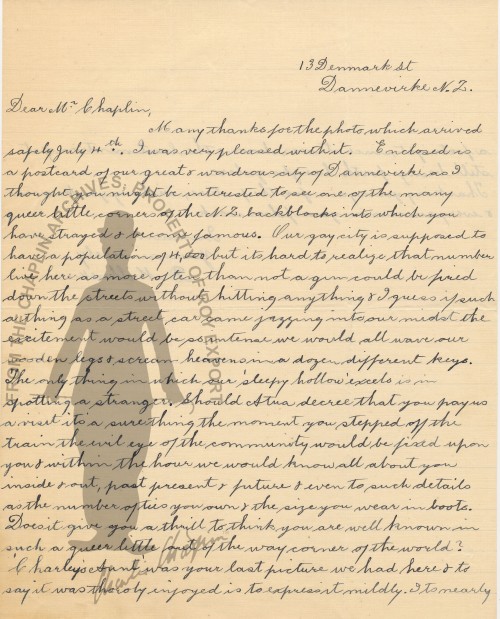 13 Denmark St
Dannevirke N.Z.
Dear Mr Chaplin,
Many thanks for the photo which arrived
safely July 4th. I was very pleased with it. Enclosed is
a postcard of our great & wondrous city of Dannevirke as I
thought you might be interested to see one of the many
queer little corners of the N.Z. backblocks into which you
have strayed & become famous. Our gay city is supposed to
have a population of 4,000 but its hard to realize that number
live here as more often than not a gun could be fired
down the streets without hitting anything & I guess if such
a thing as a street car came jazzing into our midst the
excitement would be so intense we would all wave our
wooden legs & scream heavens in a dozen different keys.
The only thing in which our 'sleepy hollow' excels is in
spotting a stranger. Should Atua decree that you pay us
a visit its a sure thing the moment you stepped off the
train the evil eye of the community would be fixed upon
you & within the hour we would know all about you
inside & out, past present & future & even to such details
as the number of ties you own & the size you wear in boots.
Does it give you a thrill to think you are well known in
such a queer little out of the way corner of the world?
'Charleys Aunt' was your last picture we had here & to
say it was thoroly enjoyed is to express it mildly. Its nearly
FROM THE CHAPLIN ARCHIVES, PROPERTY OF ROY EXPORT